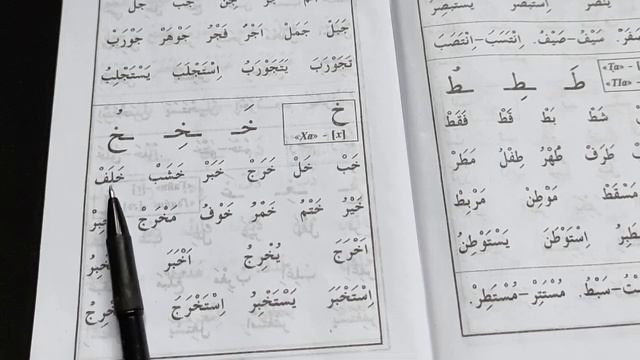 جَبَلْ جَمَلْ اَجْرْ فَجْرْ جَوْهَرْ جَوْرَبْ
تَجَوْرَبَ يَتَجَوْرَبُ اِسْتَجْلَبَ يَسْتَجْلِبُ
خَ ـخِـ ـخُ
خ
«Xa» - [x]
خَبْ خَلْ خَرَجَ خَبَرْ خَشَبْ خَلَفْ
خَيْرْ خَتْمْ خَمْرْ خَوْفْ مَخْرَجْ
اَخْرَجَ يُخْرِجُ اَخْبَرَ
اِسْتَخْبَرَ يَسْتَخْبِرُ اِسْتَخْرَجَ
يَنْصُرُ اِسْتَبْصَرَ يَسْتَبْصِرُ
سَيْفْ-صَيْفْ. اِنْتَسَبَ-اِنْتَصَبَ
طَ ـطِـ ـطُ
شَطْ بَطْ قَطْ فَقَطْ
طَرَفْ طُهْرْ طِفْلْ مَطَرْ
مَوْطِنْ مَرْبِطْ
اِسْتَوْطَنَ يَسْتَوْطِنُ
سَبْطْ. مُسْتَتِرْ-مُسْتَطِرْ.